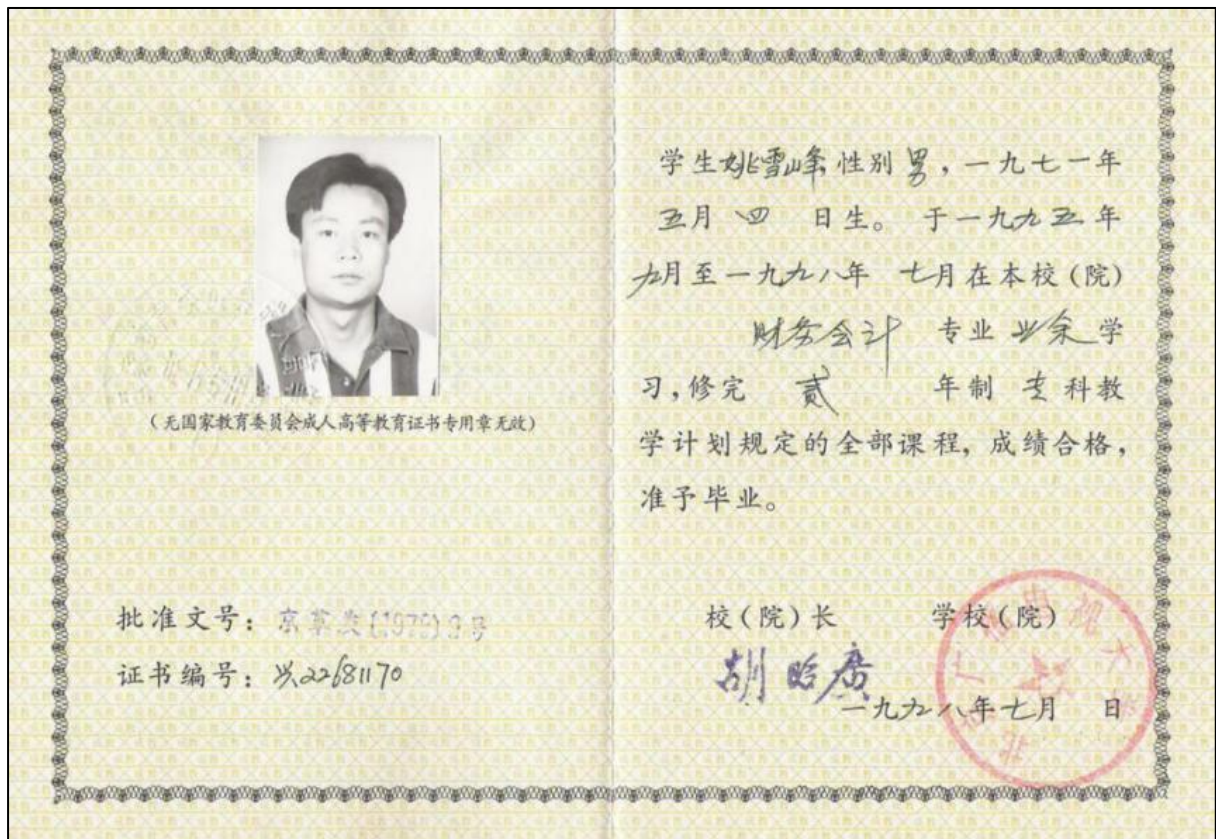 (无国家教育委员会成人高等教育证书专用章无效)
批准文号:京革发(1979)3号
证书编号:兴22681170
学生姚雪峰 性别 男,一九七一年
五月 四 日生。 于一九九五年
九月至一九九八年 七月在本校(院)
财务会计 专业 业余 学
习,修完 贰 年制 专科教
学计划规定的全部课程,成绩合格,
准予毕业。
校(院)长 学校(院)
一九九八年七月 日
北京广播电视大学